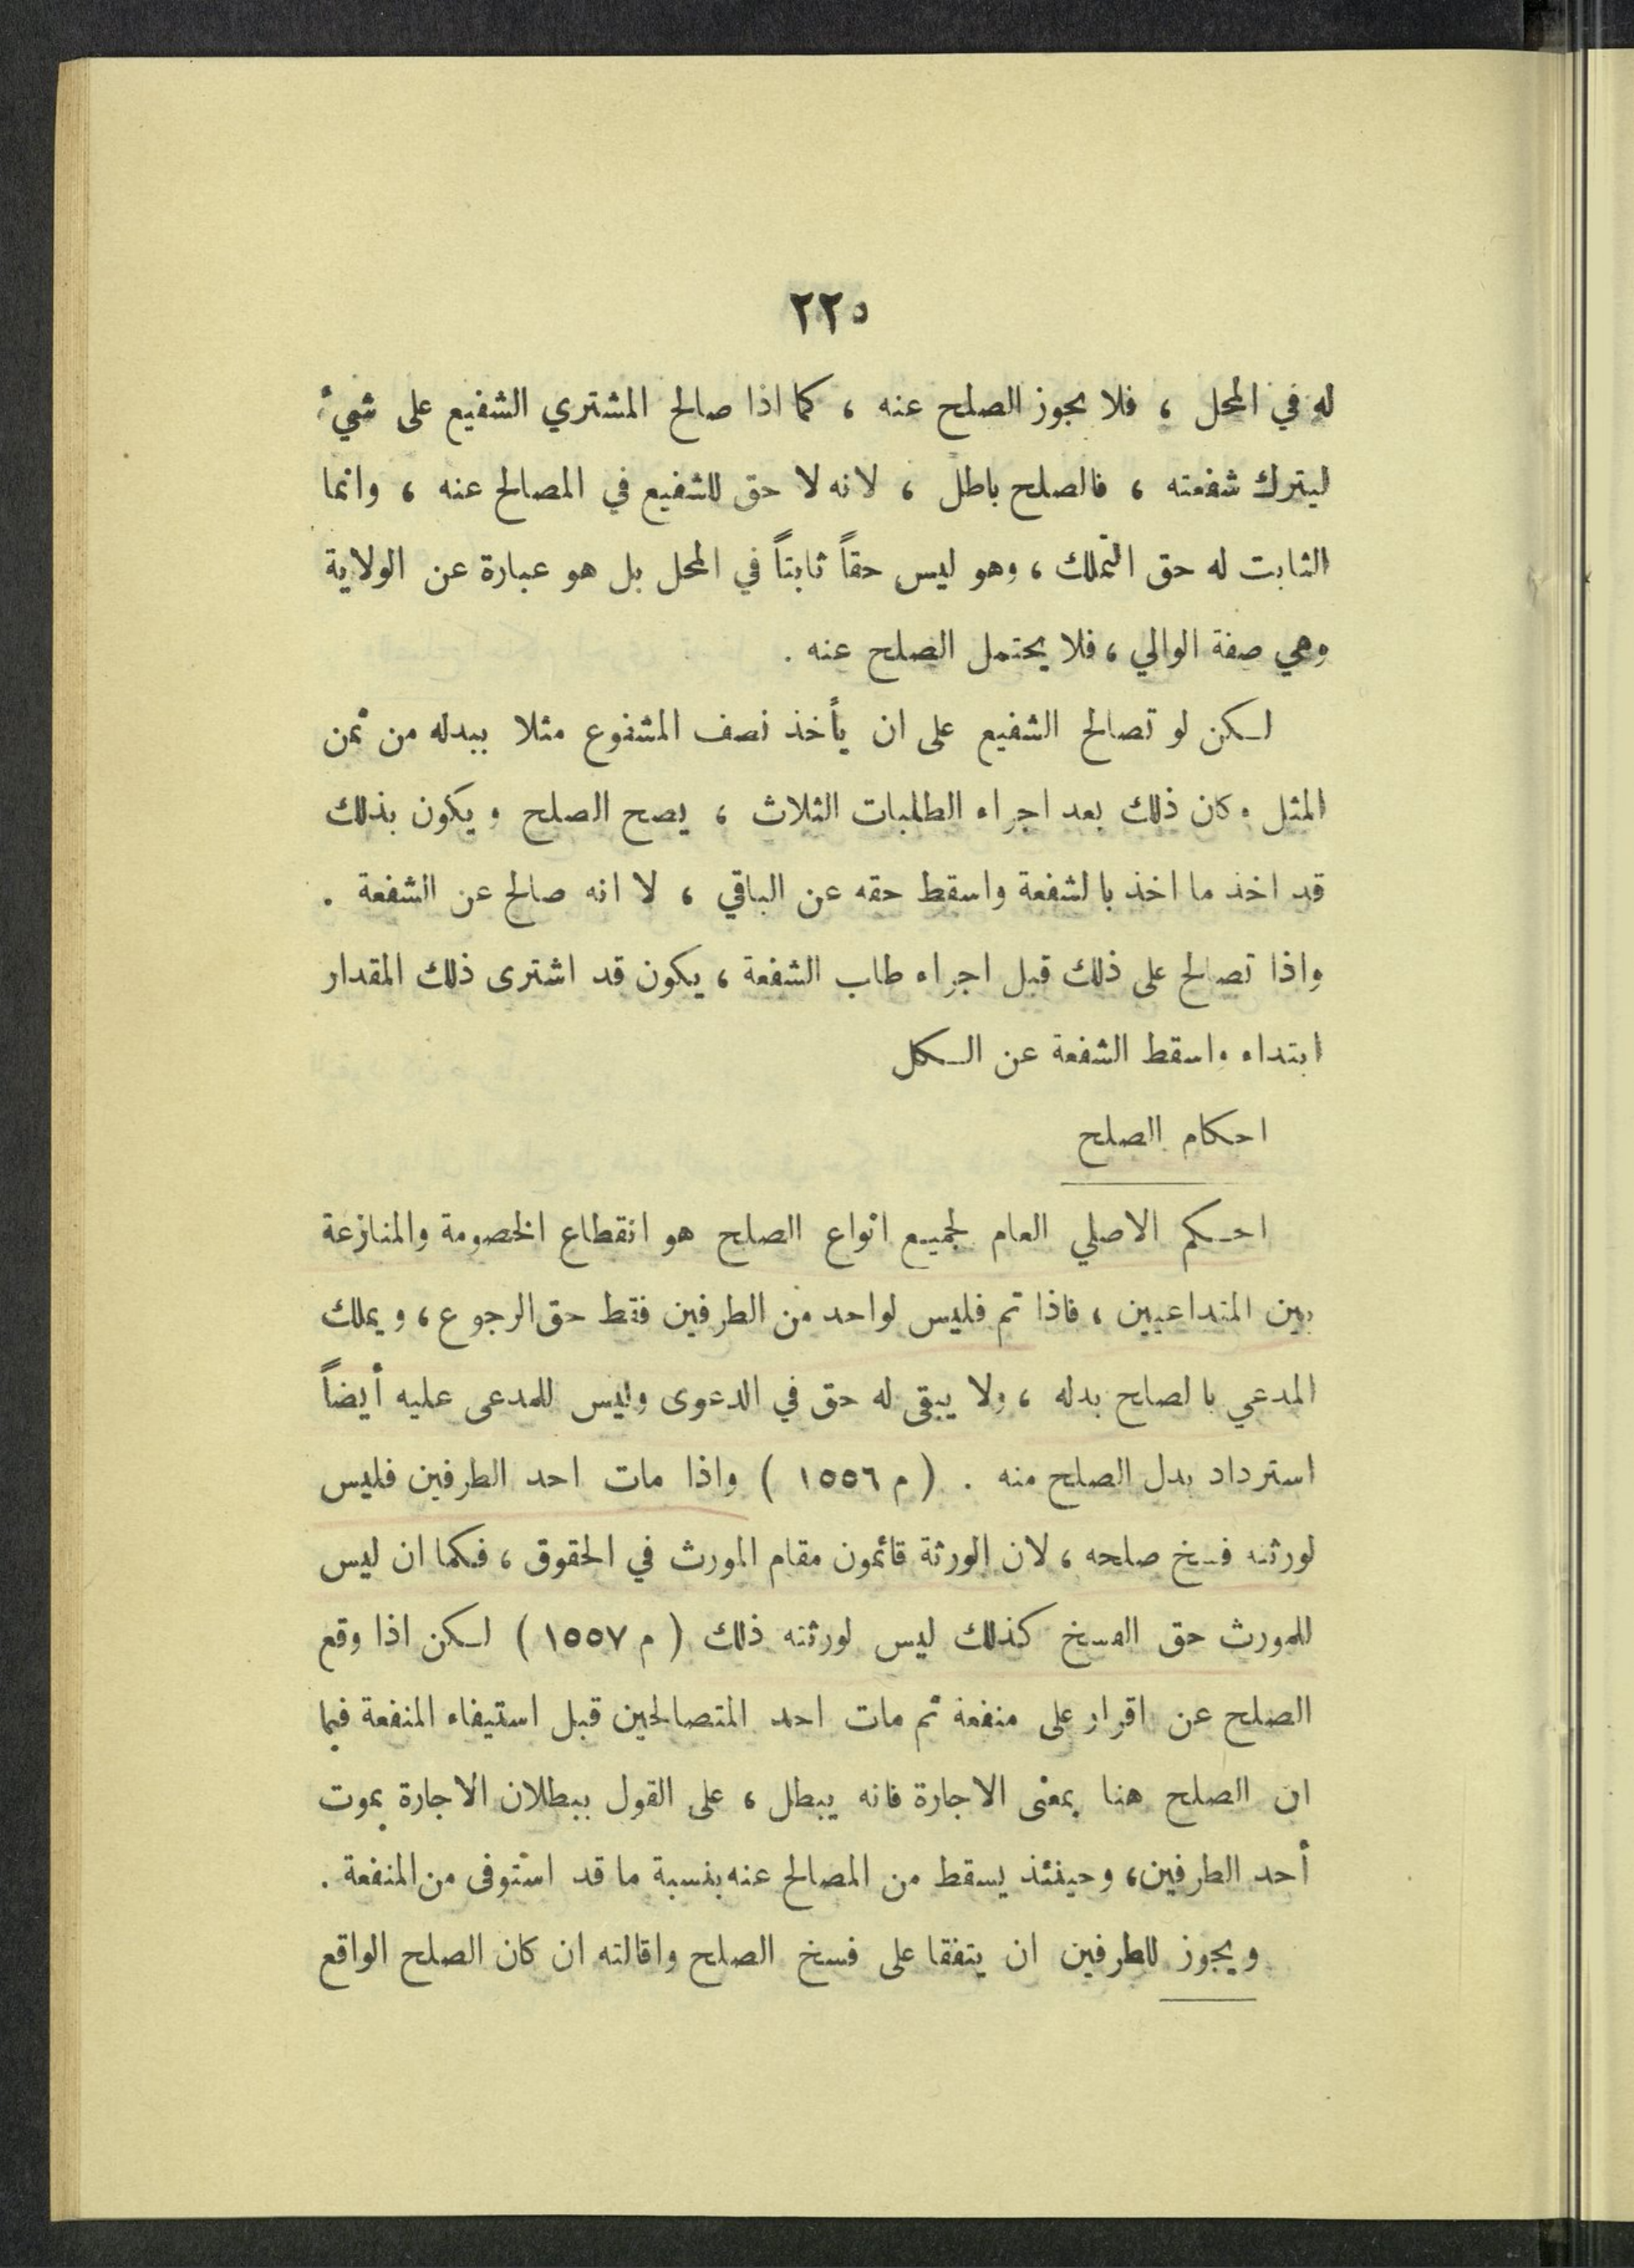 ٢٢٥
له في المحل ، فلا يجوز الصلح عنه ، كما اذا صالح المشتري الشفيع على شيء
ليترك شفعته ، فالصلح باطل ، لانه لا حق للشفيع في المصالح عنه ، وانما
الثابت له حق التملك ، وهو ليس حقاً ثابتاً في المحل بل هو عبارة عن الولاية
وهي صفة الوالي ، فلا يحتمل الصلح عنه .
لكن لو تصالح الشفيع على ان يأخذ نصف المشفوع مثلا ببدله من ثمن
المثل وكان ذلك بعد اجراء الطلبات الثلاث ، يصح الصلح ويكون بذلك
قد اخذ ما اخذ بالشفعة واسقط حقه عن الباقي ، لا انه صالح عن الشفعة .
واذا تصالح على ذلك قبل اجراء طلب الشفعة ، يكون قد اشترى ذلك المقدار
ابتداء واسقط الشفعة عن الكل
احكام الصلح
احكم الاصلي العام لجميع انواع الصلح هو انقطاع الخصومة والمنازعة
بين المتداعيين ، فاذا تم فليس لواحد من الطرفين فقط حق الرجوع ، ويملك
المدعي بالصلح بدله ، ولا يبقى له حق في الدعوى وليس للمدعى عليه أيضاً
استرداد بدل الصلح منه . ( م ١٥٥٦ ) واذا مات احد الطرفين فليس
لورثته فسخ صلحه ، لان الورثة قائمون مقام المورث في الحقوق ، فكما ان ليس
للمورث حق الفسخ كذلك ليس لورثته ذلك ( م ١٥٥٧ ) لكن اذا وقع
الصلح عن اقرار على منفعة ثم مات احد المتصالحين قبل استيفاء المنفعة فبما
ان الصلح هنا بمعنى الاجارة فانه يبطل ، على القول ببطلان الاجارة بموت
أحد الطرفين ، وحينئذ يسقط من المصالح عنه بنسبة ما قد استوفى من المنفعة .
ويجوز للطرفين ان يتفقا على فسخ الصلح واقالته ان كان الصلح الواقع